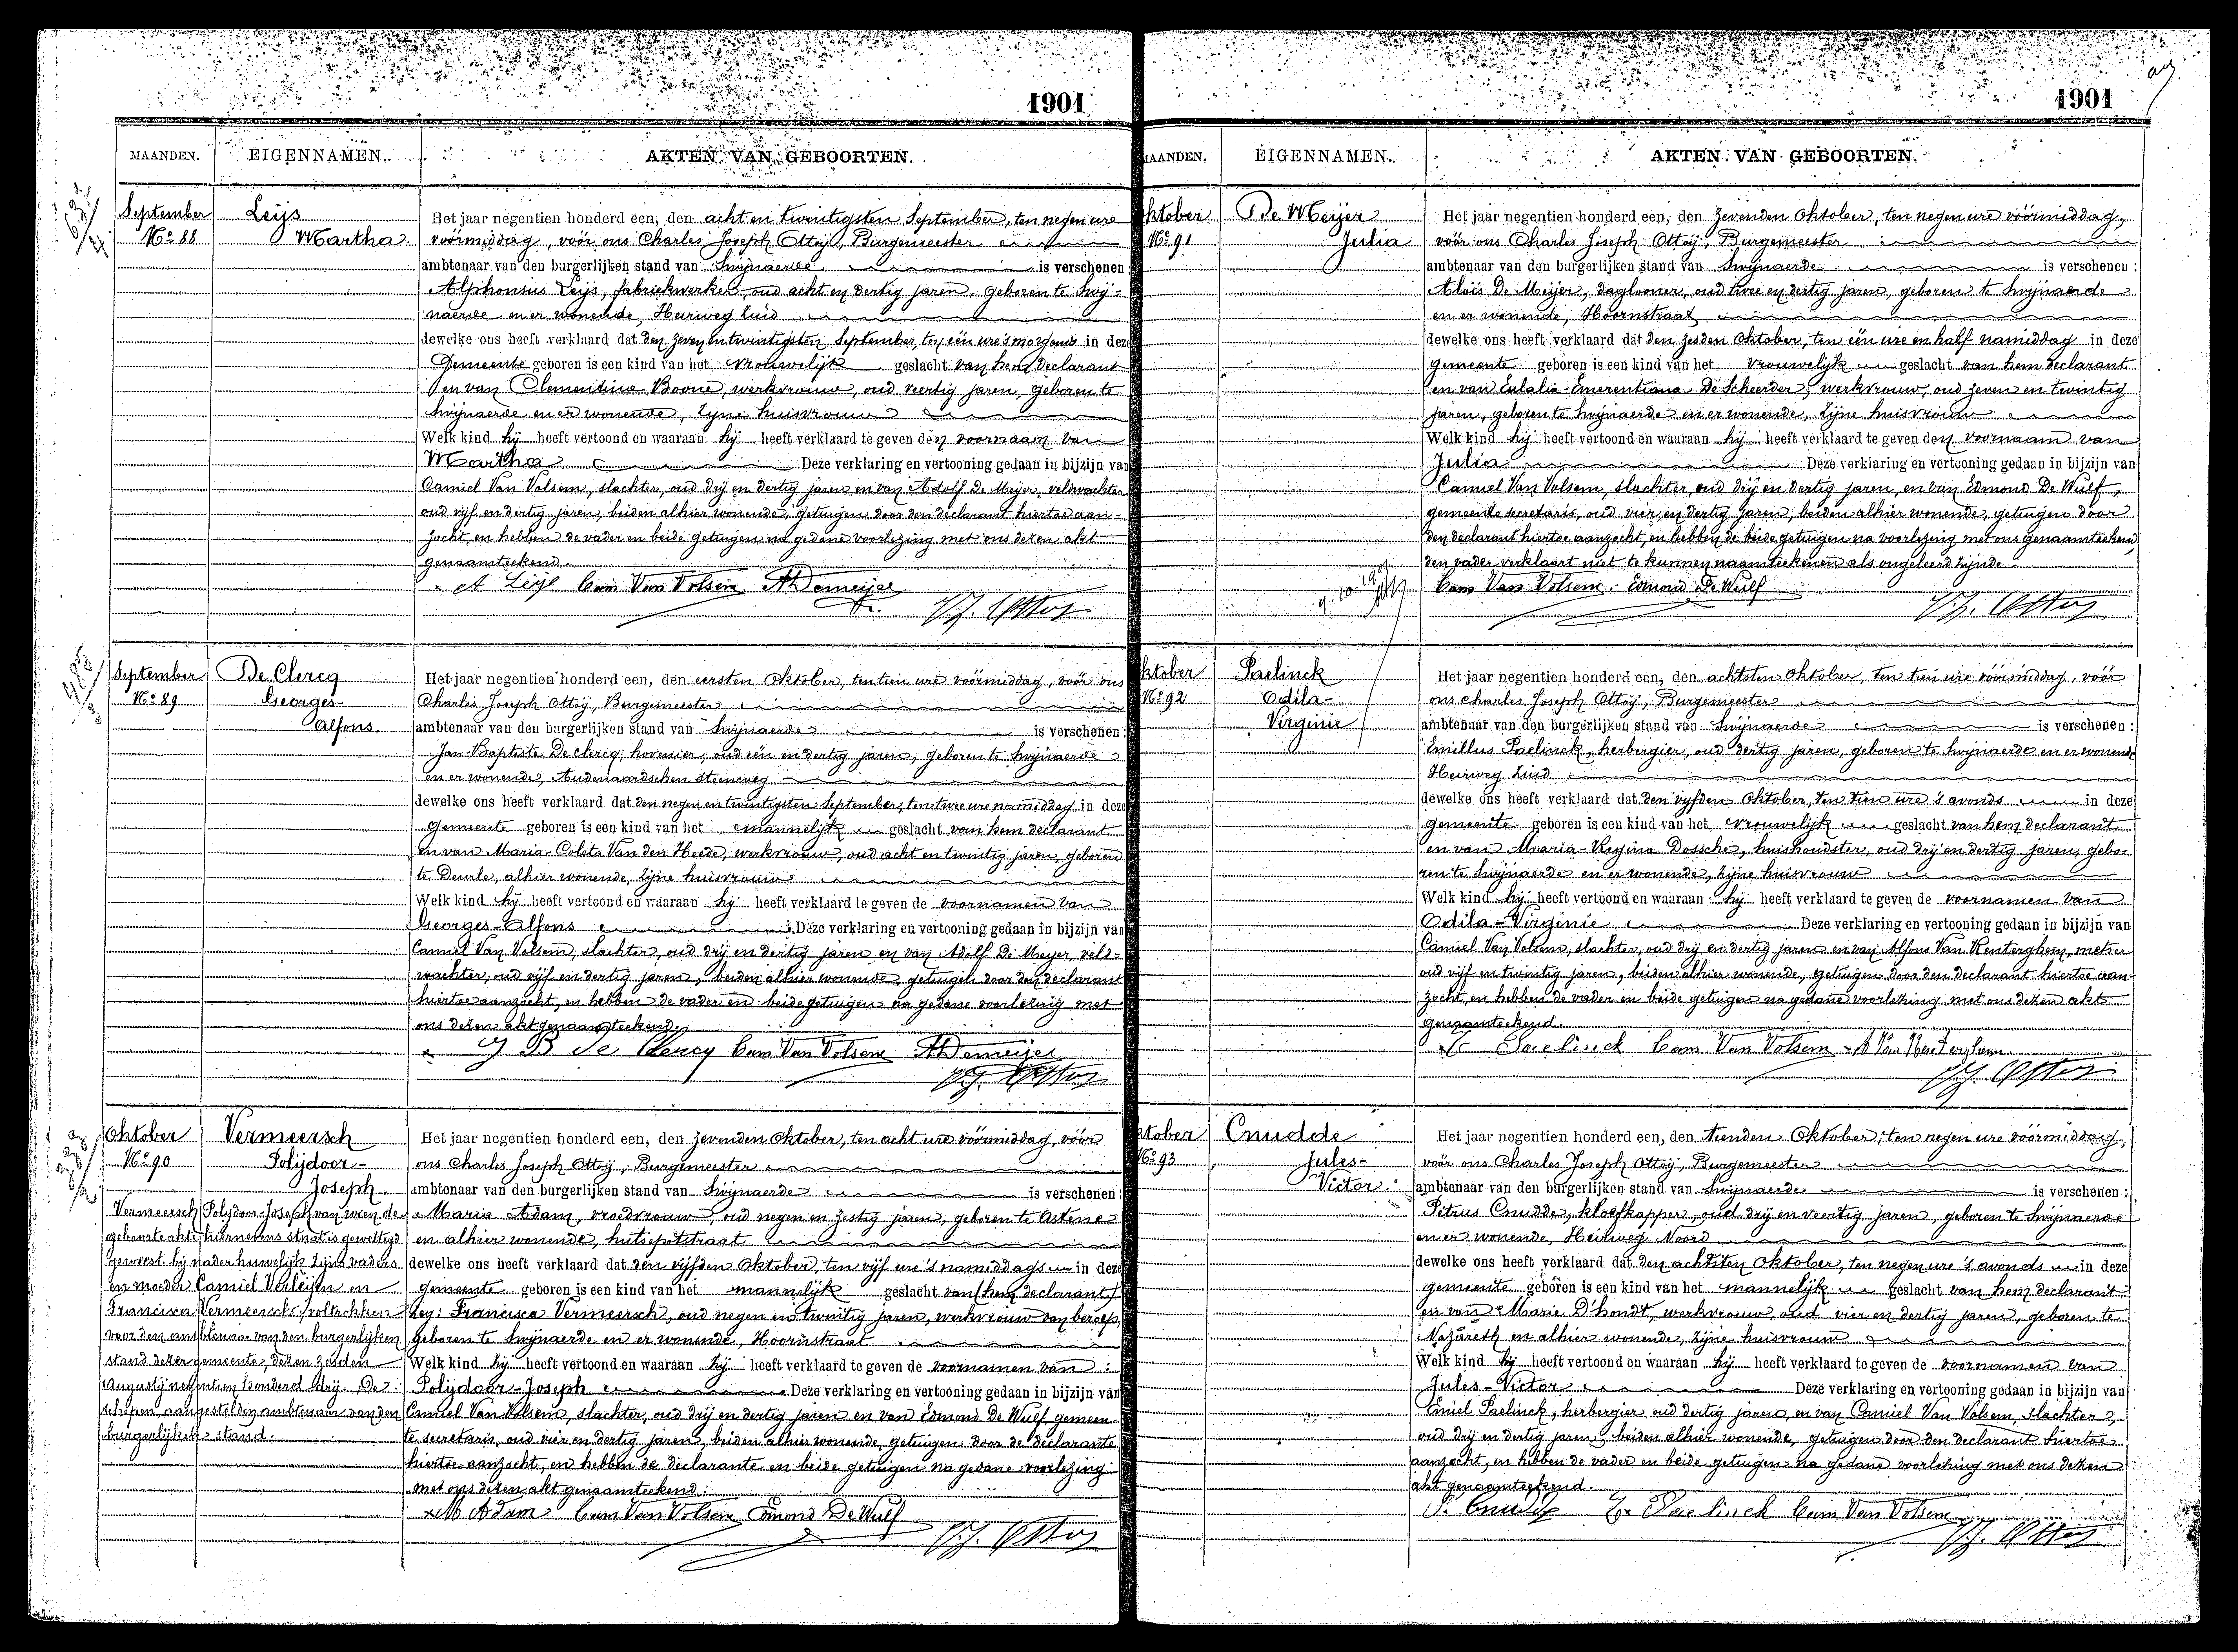 1901
MAANDEN. EIGENNAMEN. AKTEN VAN GEBOORTEN.
September
No 88
Leijs
Martha.
Het jaar negentien honderd een, den acht en twintigsten September, ten negen ure
voormiddag, voor ons Charles Joseph Ottoij, Burgemeester
ambtenaar van den burgerlijken stand van Swijnaerde is verschenen
Alphonsus Leijs, fabriekwerker, oud acht en dertig jaren, geboren te Swij-
naerde en er wonende, Heirweg Zuid
dewelke ons heeft verklaard dat den zeven en twintigsten September, ten één ure 's morgends in deze
Gemeente geboren is een kind van het vrouwelijk geslacht van hem declarant
en van Clementina Boone, werkvrouw, oud veertig jaren, geboren te
Swijnaerde en er wonende, zijne huisvrouw
Welk kind hij heeft vertoond en waaraan hij heeft verklaard te geven den voornaam van
Martha Deze verklaring en vertooning gedaan in bijzijn van
Camiel Van Volsem, slachter, oud drij en dertig jaren en van Adolf De Meijer, veldwachter
oud vijf en dertig jaren, beiden alhier wonende, getuigen door den declarant hiertoe aan-
zocht, en hebben de vader en beide getuigen na gedane voorlezing met ons dezen akt
genaamteekend.
A Leijs Cam Van Volsem AD Demeijer
September
No 89
De Clercq
Georges-
Alfons.
Het jaar negentien honderd een, den eersten Oktober, ten tien ure voormiddag, voor ons
Charles Joseph Ottoij, Burgemeester
ambtenaar van den burgerlijken stand van Swijnaerde is verschenen:
Jan-Baptiste De clercq, hovenier, oud één en dertig jaren, geboren te Swijnaerde
en er wonende, Audenaardschen steenweg
dewelke ons heeft verklaard dat den negen en twintigsten September, ten twee ure namiddag in deze
Gemeente geboren is een kind van het mannelijk geslacht van hem declarant
en van Maria-Coleta Van den Heede, werkvrouw, oud acht en twintig jaren, geboren
te Deurle, alhier wonende, zijne huisvrouw
Welk kind hij heeft vertoond en waaraan hij heeft verklaard te geven de voornamen van
Georges-Alfons Deze verklaring en vertooning gedaan in bijzijn van
Camiel Van Volsem, slachter, oud drij en dertig jaren en van Adolf De Meyer, veld-
wachter, oud vijf en dertig jaren, beiden alhier wonende, getuigen door den declarant
hiertoe aanzocht, en hebben de vader en beide getuigen na gedane voorlezing met
ons dezen akt genaamteekend.
J B De Clercq Cam Van Volsem AD Demeijer
Oktober
No 90
Vermeersch
Polijdoor-
Joseph.
Vermeersch Polydoor-Joseph van wien de
geboorteakte hiernevens staat is gewettigd
geweest bij nader huwelijk zijns vaders
en moeder Camiel Verleijen en
Francisca Vermeersch, voltrokken
voor den ambtenaar van den burgerlijken
stand dezer gemeente, dezen zesden
Augustij negentien honderd drij. De
schepen, aangestelden ambtenaar van den
burgerlijken stand.
Het jaar negentien honderd een, den zevenden Oktober, ten acht ure voormiddag, voor
ons Charles Joseph Ottoij, Burgemeester
ambtenaar van den burgerlijken stand van Swijnaerde is verschenen:
Maria Adam, vroedvrouw, oud negen en zestig jaren, geboren te Astene
en alhier wonende, hutsepotstraat
dewelke ons heeft verklaard dat den vijfden Oktober, ten vijf ure 's namiddags in deze
gemeente geboren is een kind van het mannelijk geslacht van (hem declarant)
Francisca Vermeersch, oud negen en twintig jaren, werkvrouw van beroep,
geboren te Swijnaerde en er wonende, Hoornstraat
Welk kind hij heeft vertoond en waaraan hij heeft verklaard te geven de voornamen van:
Polijdoor-Joseph Deze verklaring en vertooning gedaan in bijzijn van
Camiel Van Volsem, slachter, oud drij en dertig jaren en van Edmond De Wulf, gemeen-
te secretaris, oud vier en dertig jaren, beiden alhier wonende, getuigen door de declarante
hiertoe aanzocht, en hebben de declarante en beide getuigen na gedane voorlezing
met ons dezen akt genaamteekend.
M Adam Cam Van Volsem Edmond De Wulf
1901
MAANDEN. EIGENNAMEN. AKTEN VAN GEBOORTEN.
Oktober
No 91
De Meijer
Julia
Het jaar negentien honderd een, den zevenden Oktober, ten negen ure voormiddag,
voor ons Charles Joseph Ottoij, Burgemeester
ambtenaar van den burgerlijken stand van Swijnaerde is verschenen:
Aloïs De Meijer, daglooner, oud twee en dertig jaren, geboren te Swijnaerde
en er wonende, Hoornstraat
dewelke ons heeft verklaard dat den zesden Oktober, ten één ure en half namiddag in deze
gemeente geboren is een kind van het vrouwelijk geslacht van hem declarant
en van Eulalia-Emerentiana De Scheerder, werkvrouw, oud zeven en twintig
jaren, geboren te Swijnaerde en er wonende, zijne huisvrouw
Welk kind hij heeft vertoond en waaraan hij heeft verklaard te geven den voornaam van
Julia Deze verklaring en vertooning gedaan in bijzijn van
Camiel Van Volsem, slachter, oud drij en dertig jaren, en van Edmond De Wulf,
gemeente secretaris, oud vier en dertig jaren, beiden alhier wonende, getuigen door
den declarant hiertoe aanzocht, en hebben de beide getuigen na voorlezing met ons genaamteekend
den vader verklaart niet te kunnen naamteekenen als ongeleerd zijnde.
Cam Van Volsem Edmond De Wulf
Oktober
No 92
Paelinck
Odila-
Virginie
Het jaar negentien honderd een, den achtsten Oktober, ten tien ure voormiddag, voor
ons Charles Joseph Ottoij, Burgemeester
ambtenaar van den burgerlijken stand van Swijnaerde is verschenen:
Emillus Paelinck, herbergier, oud dertig jaren, geboren te Swijnaerde en er wonende
Heirweg Zuid
dewelke ons heeft verklaard dat den vijfden Oktober, ten tien ure 's avonds in deze
gemeente geboren is een kind van het vrouwelijk geslacht van hem declarant
en van Maria-Regina Dossche, huishoudster, oud drij en dertig jaren, gebo-
ren te Swijnaerde en er wonende, zijne huisvrouw
Welk kind hij heeft vertoond en waaraan hij heeft verklaard te geven de voornamen van
Odila-Virginie Deze verklaring en vertooning gedaan in bijzijn van
Camiel Van Volsem, slachter, oud drij en dertig jaren en van Alfons Van Renterghem, metser
oud vijf en twintig jaren, beiden alhier wonende, getuigen door den declarant hiertoe aan-
zocht, en hebben de vader en beide getuigen na gedane voorlezing met ons dezen akt
genaamteekend.
Paelinck Cam Van Volsem A Van Renterghem
Oktober
No 93
Cnudde
Jules-
Victor.
Het jaar negentien honderd een, den tienden Oktober, ten negen ure voormiddag,
voor ons Charles Joseph Ottoij, Burgemeester
ambtenaar van den burgerlijken stand van Swijnaerde is verschenen:
Petrus Cnudde, kloefkapper, oud drij en veertig jaren, geboren te Swijnaerde
en er wonende, Heirweg Noord
dewelke ons heeft verklaard dat den achtsten Oktober, ten negen ure 's avonds in deze
gemeente geboren is een kind van het mannelijk geslacht van hem declarant
en van Marie D'hondt, werkvrouw, oud vier en dertig jaren, geboren te
Nazareth en alhier wonende, zijne huisvrouw
Welk kind hij heeft vertoond en waaraan hij heeft verklaard te geven de voornamen van
Jules-Victor Deze verklaring en vertooning gedaan in bijzijn van
Emiel Paelinck, herbergier oud dertig jaren, en van Camiel Van Volsem, slachter,
oud drij en dertig jaren, beiden alhier wonende, getuigen door den declarant hiertoe
aanzocht, en hebben de vader en beide getuigen na gedane voorlezing met ons dezen
akt genaamteekend.
P. Cnudde E. Paelinck Cam Van Volsem